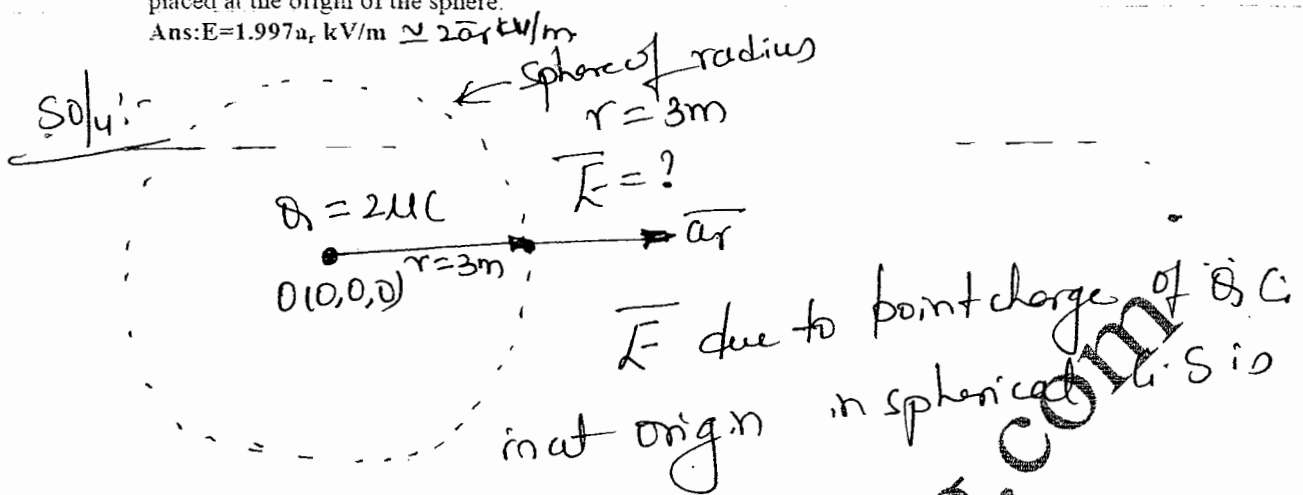 placed at the origin of the sphere.
Ans:E=1.997aᵣ kV/m ≃ 2a̅ᵣ kV/m
Sphere of radius
r = 3m
E̅ = ?
Q = 2μC
a̅ᵣ
r=3m
O(0,0,0)
E̅ due to point charge of Q C
at origin in spherical C.S is
.com